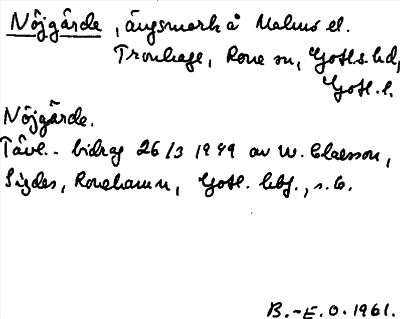 Nöjgärde, ängsmark å Malms el.
Tronhage, Rone sn, Gotl. s. hd,
Gotl. l.
Nöjgärde.
Tävl.-bidrag 26/3 1949 av W. Claesson,
Sigdes, Ronehamn, Gotl. hbf., s. 6.
B.-E. O. 1961.